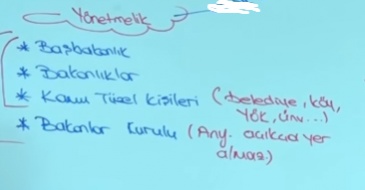 Yönetmelik
* Başbakanlık
* Bakanlıklar
* Kamu Tüzel Kişileri (belediye, köy,
YÖK, Ünv...)
* Bakanlar Kurulu (Any. açıkça yer
almaz)